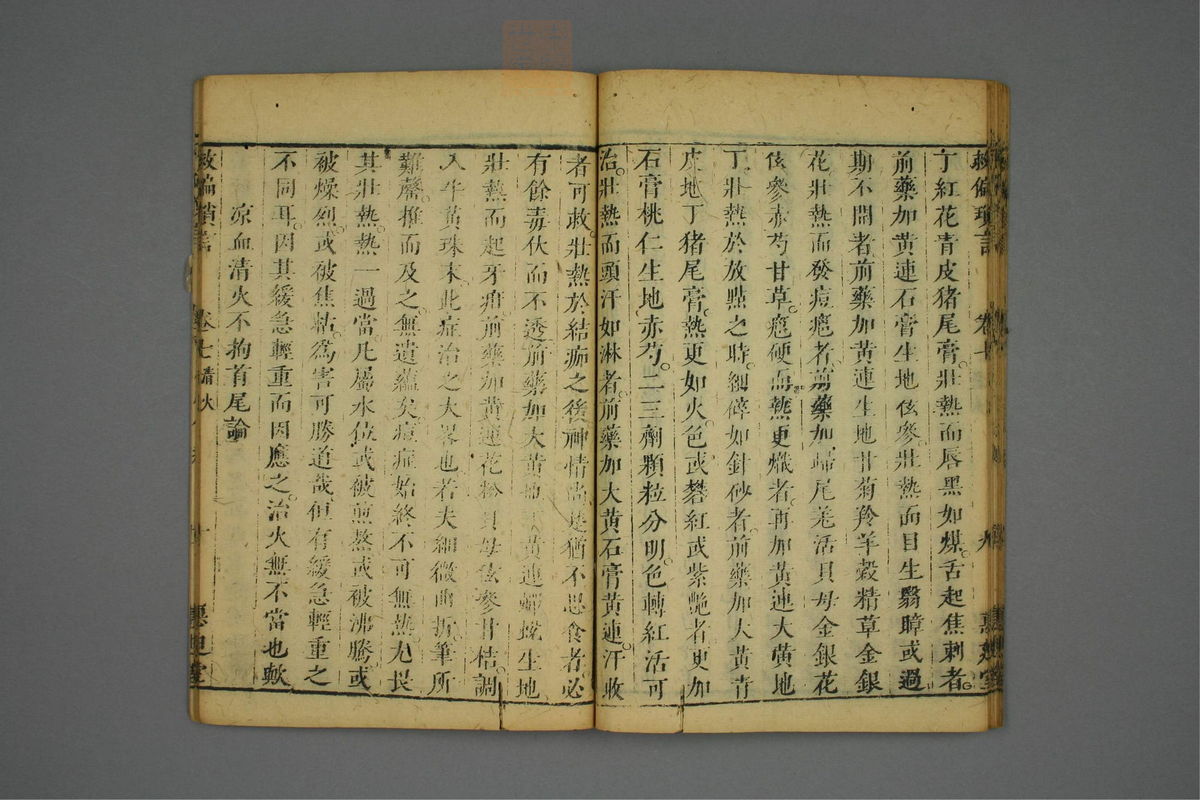 救偏瑣言 卷七 九 惠迪堂
丁紅花青皮猪尾膏壯熱而唇黑如煤舌起焦刺者
前藥加黄連石膏生地伭參壯熱而目生翳暲或過
期不開者前藥加黄連生地甘菊羚羊穀精草金銀
花壯熱而發痘瘢者前藥加歸尾羌活貝母金銀花
伭參赤芍甘草瘢硬而熱更熾者再加黄連大黄地
丁壯熱於放點之時細碎如針砂者前藥加大黄青
皮地丁猪尾膏熱更如火色或礬紅或紫艷者更加
石膏桃仁生地赤芍二三劑顆粒分明色轉紅活可
治壯熱而頭汗如淋者前藥加大黄石膏黄連汗收
者可救壯熱於結痂之後神情尚是猶不思食者必
有餘毒伏而不透前藥加大黄地丁黄連蟬蛻生地
壯熱而起牙疳前藥加黄連花粉貝母伭參甘桔調
入牛黄珠末此症治之大畧也若夫細微曲折筆所
難罄推而及之無遺蘊矣痘症始終不可無熱尤畏
其壯熱熱一過當凡屬水位或被煎熬或被沸騰或
被燥烈或被焦枯爲害可勝道哉但有緩急輕重之
不同耳因其緩急輕重而因應之治火無不當也歟
凉血清火不拘首尾論
救偏瑣言 卷七 十 惠迪堂